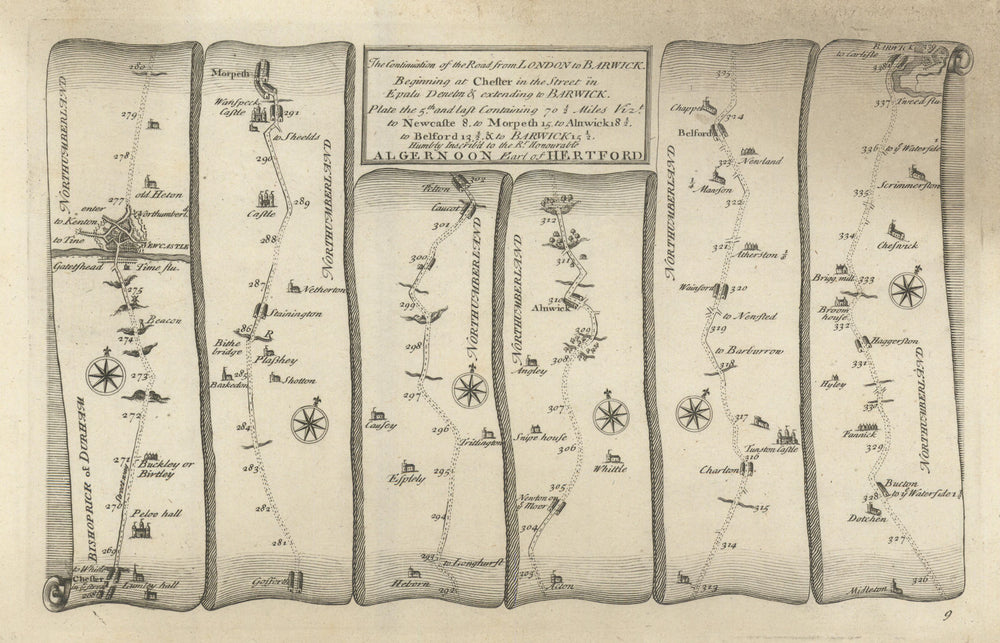 The Continuation of the Road from LONDON to BARWICK.
Beginning at Chester in the Street in
Epalu Denelm & extending to BARWICK.
Plate the 5.th and last Containing 70 ½ Miles Vizt
to Newcastle 8. to Morpeth 15. to Alnwick 18 ½.
to Belford 13 ¾ & to BARWICK 15 ½.
Humbly Inscrib'd to the Rt. Honourable
ALGERNOON Earl of HERTFORD
280
NORTHUMBERLAND
279
278
old Heton
277
enter
Northumberl.d
to Kenton
to Tine
NEWCASTLE
Gateshead
Time flu.
275
Beacon
274
273
272
271
Buckley or
Birtley
270
Pelow hall
BISHOPRICK of DURHAM
269
Chester
in ye street
Lumley hall
268
Morpeth
Wanspeck
Castle
291
to Sheelds
290
NORTHUMBERLAND
Castle
289
288
287
Netherton
Stainington
286
R
Bithe
bridge
Plashey
Bakedon
285
Shotton
284
283
282
281
Gosford
302
Felton
Caucot
301
NORTHUMBERLAND
300
299
298
297
Causey
296
Tritlington
Esplely
295
294
293
to Longhurst
Heborn
292
312
NORTHUMBERLAND
311
310
Alnwick
309
308
Angley
307
Snipe house
306
Whittle
305
Newton on
ye Moor
304
303
Acton
325
Chappel
324
Belford
NORTHUMBERLAND
323
Newland
Manson
322
321
Atherston ½
Wainford
320
319
to Newsted
to Barburrow
318
317
Tunston castle
316
Charlton
315
314
313
BARWICK
to Carlisle
338
337
Tweed flu.
336
to ye Waterside
335
Scrimmerston
334
Cheswick
Brigg mill
333
Broom
house
332
Haggerston
331
NORTHUMBERLAND
Hyley
330
Fannick
329
Bucton
328
to ye Waterside 1 ½
Dotchen
327
326
Midleton
9